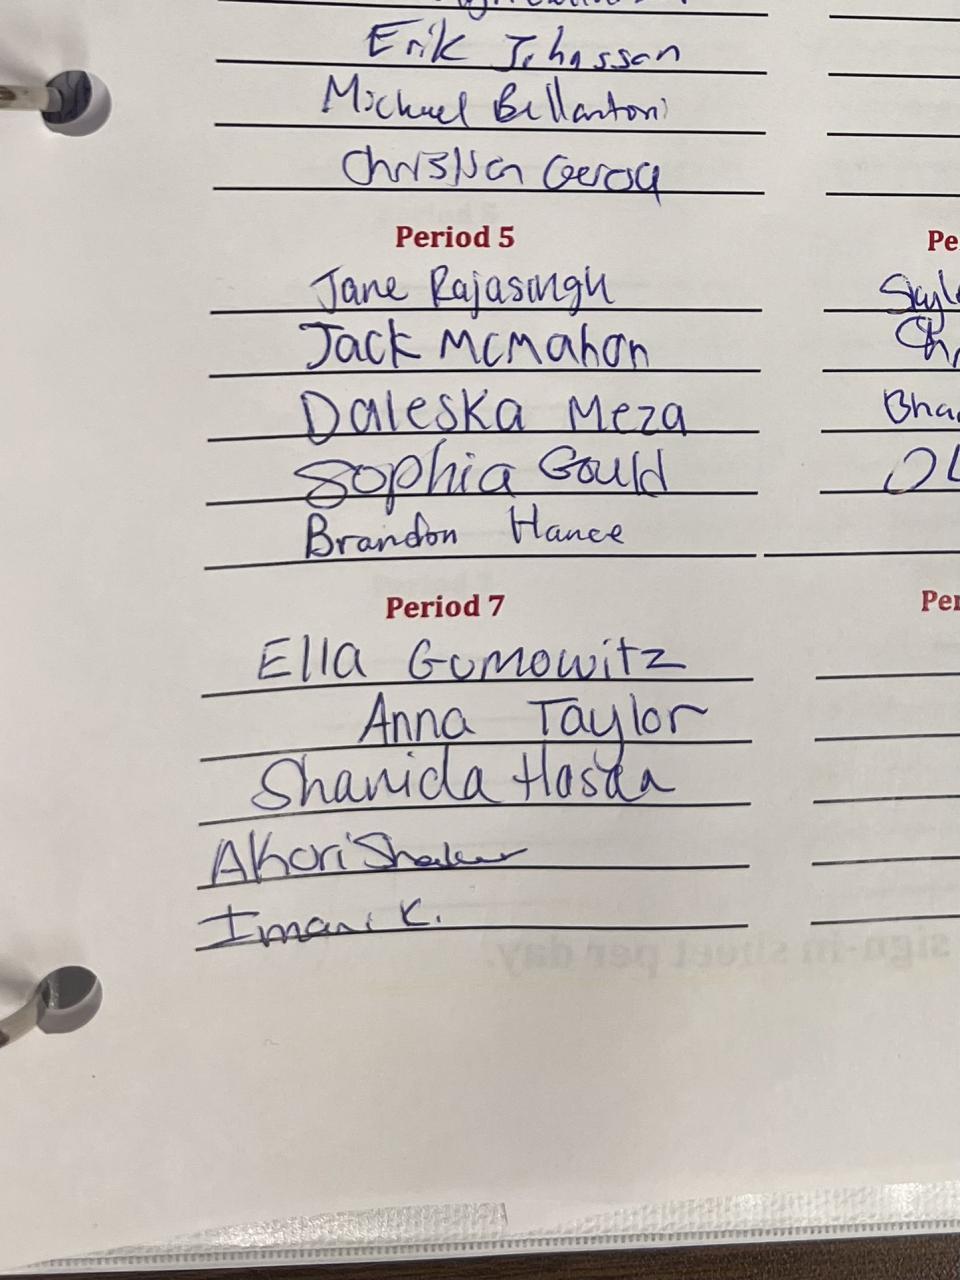 Erik Johnssan
Michael Bellantoni
Christian Gerog
Period 5
Jane Rajasingh
Jack McMahon
Daleska Meza
Sophia Gould
Brandon Hance
Period 7
Ella Gomowitz
Anna Taylor
Shanida Hosea
Akori Shaker
Imani K.
sign-in sheet per day.